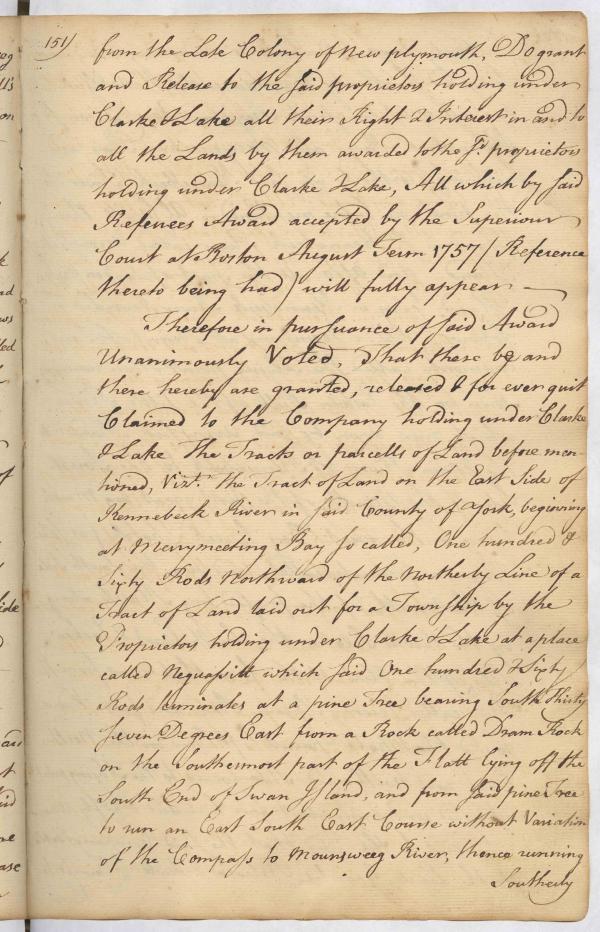 151/
from the Late Colony of New plymouth, Do grant
and Release to the said proprietors holding under
Clarke & Lake all their Right & Interest in and to
all the Lands by them awarded to the sd. proprietors
holding under Clarke & Lake, All which by said
Referrees Award accepted by the Superiour
Court at Boston August Term 1757 (Reference
thereto being had) will fully appear —
Therefore in pursuance of said Award
Unanimously Voted, That there be and
there hereby are granted, released & for ever quit
Claimed to the Company holding under Clarke
& Lake The Tracts or parcells of Land before men-
tioned, Vizt. the Tract of Land on the East Side of
Kennebeck River in said County of York, beginning
at Merrymeeting Bay so called, One hundred &
Sixty Rods Northward of the Northerly Line of a
Tract of Land laid out for a Township by the
Proprietors holding under Clarke & Lake at a place
called Neguassitt which said One hundred & Sixty
Rods terminates at a pine Tree bearing South Thirty
seven Degrees East from a Rock called Dram Rock
on the Southermost part of the Flatt lying off the
South End of Swan Island, and from said pine Tree
to run an East South East Course without Variation
of the Compass to Mounsweeg River, thence running
Southerly